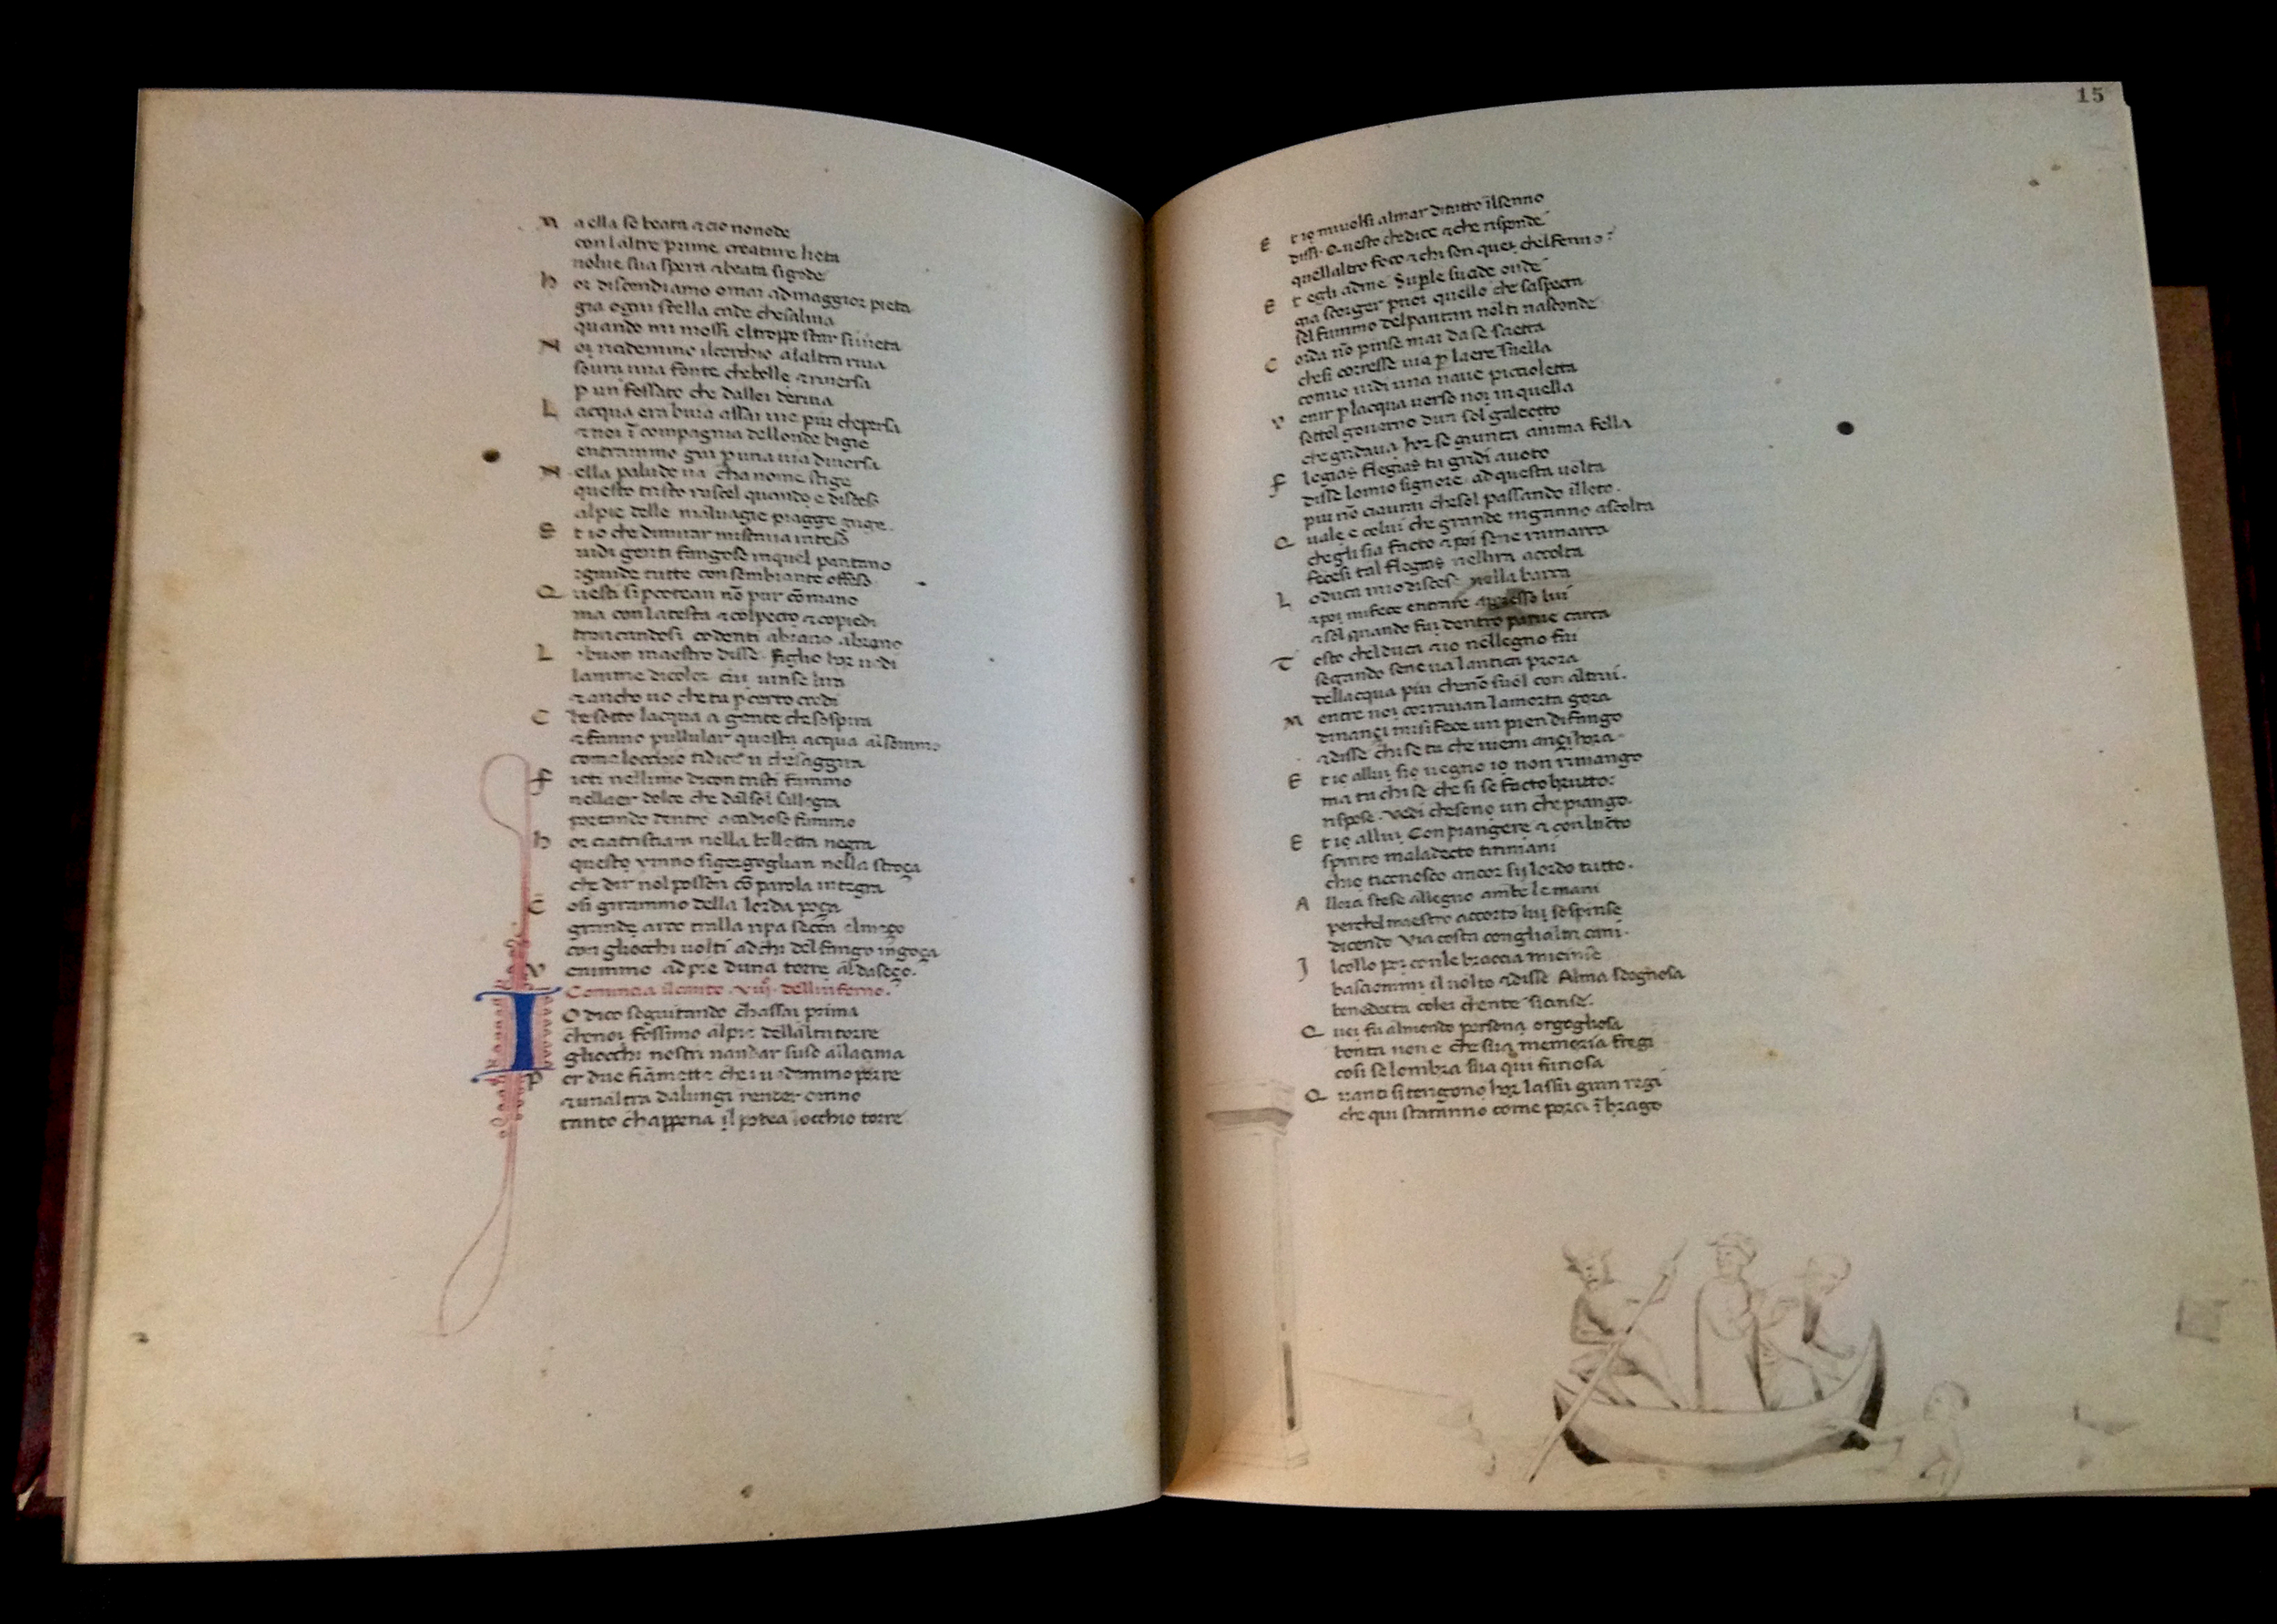 M a ella se beata & cio non ode
con laltre prime creature lieta
volue sua spera & beata si gode
h or discendiamo omai ad maggior pieta
gia ogni stella cade che saliua
quando mi mossi el troppo star si uieta
N oi ricidemmo il cerchio alaltra riua
soura una fonte che bolle & riuersa
p un fossato che dallei deriua
L acqua era buia assai uie piu che persa
& noi ī compagnia dellonde bigie
entrammo giu p una uia diuersa
N ella palude ua cha nome stige
questo tristo ruscel quando e disceso
al pie delle maluagie piagge grige.
E t io che di mirar mi staua inteso
uidi genti fangose in quel pantano
ignude tutte con sembiante offeso
Q uesti si percotean nō pur cō mano
ma con la testa & col pecto & co piedi
troncandosi co denti abrano abrano
L o buon maestro disse. figlio hor uedi
lanime di color cui uinse lira
& ancho uo che tu p certo credi
C he sotto lacqua a gente che sospira
& fanno pullular questa acqua al sommo
come locchio ti dice u che saggira
F icti nel limo dicon tristi fummo
nellaer dolce che dal sol sillegra
portando dentro accidioso fummo
h or ci atristiam nella belletta negra
questo ynno si gorgoglian nella stroça
che dir nol posson cō parola integra
C osi girammo della lorda poça
grande arco tralla ripa secca el meço
con gliocchi uolti ad chi del fango ingoça
V enimmo ad pie duna torre al dasseço.
Comincia il canto .viij. dellinferno.
I O dico seguitando chassai prima
che noi fossimo al pie dellalta torre
gliocchi nostri nandar suso alla cima
P er due fiāmette che i uedemmo porre
& unaltra da lungi render cenno
tanto chappena il potea locchio torre
15
E t io mi uolsi al mar di tutto il senno
dissi. Questo che dice & che risponde
quellaltro foco & chi son quei chel fenno?
E t egli ad me. Su p le sucide onde
gia scorger puoi quello che saspecta
sel fummo del pantan nol ti nasconde
C orda nō pinse mai da se saetta
che si corresse uia p laere snella
comio uidi una naue piccioletta
V enir p lacqua uerso noi in quella
sottol gouerno dun sol galeotto
che gridaua hor se giunta anima fella
F legias flegias tu gridi auoto
disse lo mio signore ad questa uolta
piu nō ci aurai che sol passando il loto.
Q uale e colui che grande inganno ascolta
che gli sia facto & poi sene ramarca
fecesi tal flegias nellira accolta
L o duca mio discese nella barca
& poi mi fece entrare apresso lui
& sol quando fui dentro parue carca
T osto chel duca & io nel legno fui
segando sene ua lantica prora
dellacqua piu che nō suol con altrui.
M entre noi corrauan la morta gora
dinançi mi si fece un pien di fango
& disse chi se tu che uieni ançi hora
E t io allui sio uegno io non rimango
ma tu chi se che si se facto brutto?
rispose. Vedi che sono un che piango.
E t io allui Con piangere & con lucto
spirito maladecto ti rimani
chio ti conosco ancor sij lordo tutto.
A llora stese allegno ambe le mani
perchel maestro accorto lui sospinse
dicendo Via costa con glialtri cani.
J l collo poi con le braccia mi cinse
basciommi il uolto & disse Alma sdegnosa
benedecta colei chente sicinse.
Q uei fu al mondo persona orgogliosa
bonta non e che sua memoria fregi
cosi se lombra sua qui furiosa
Q uanti si tengono hor lassu gran regi
che qui staranno come porci ī brago